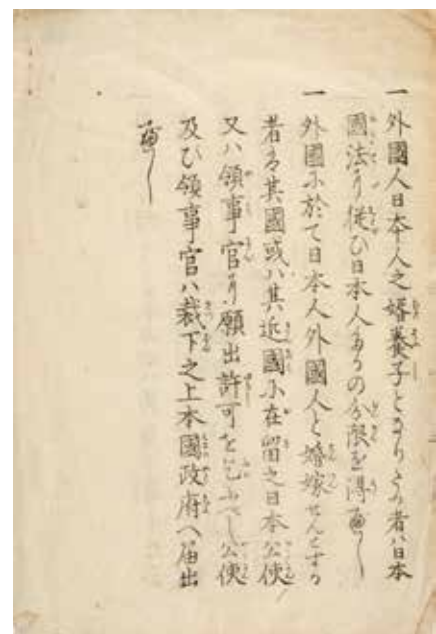 一 外國人日本人之婿養子となりたる者ハ日本
國法に従ひ日本人たるの分限を得べし
一 外國に於て日本人外國人と婚嫁せんとする
者は其國或ハ其近國に在留之日本公使
又ハ領事官に願出許可を乞ふべし公使
及ひ領事官ハ裁下之上本國政府へ届出
べし